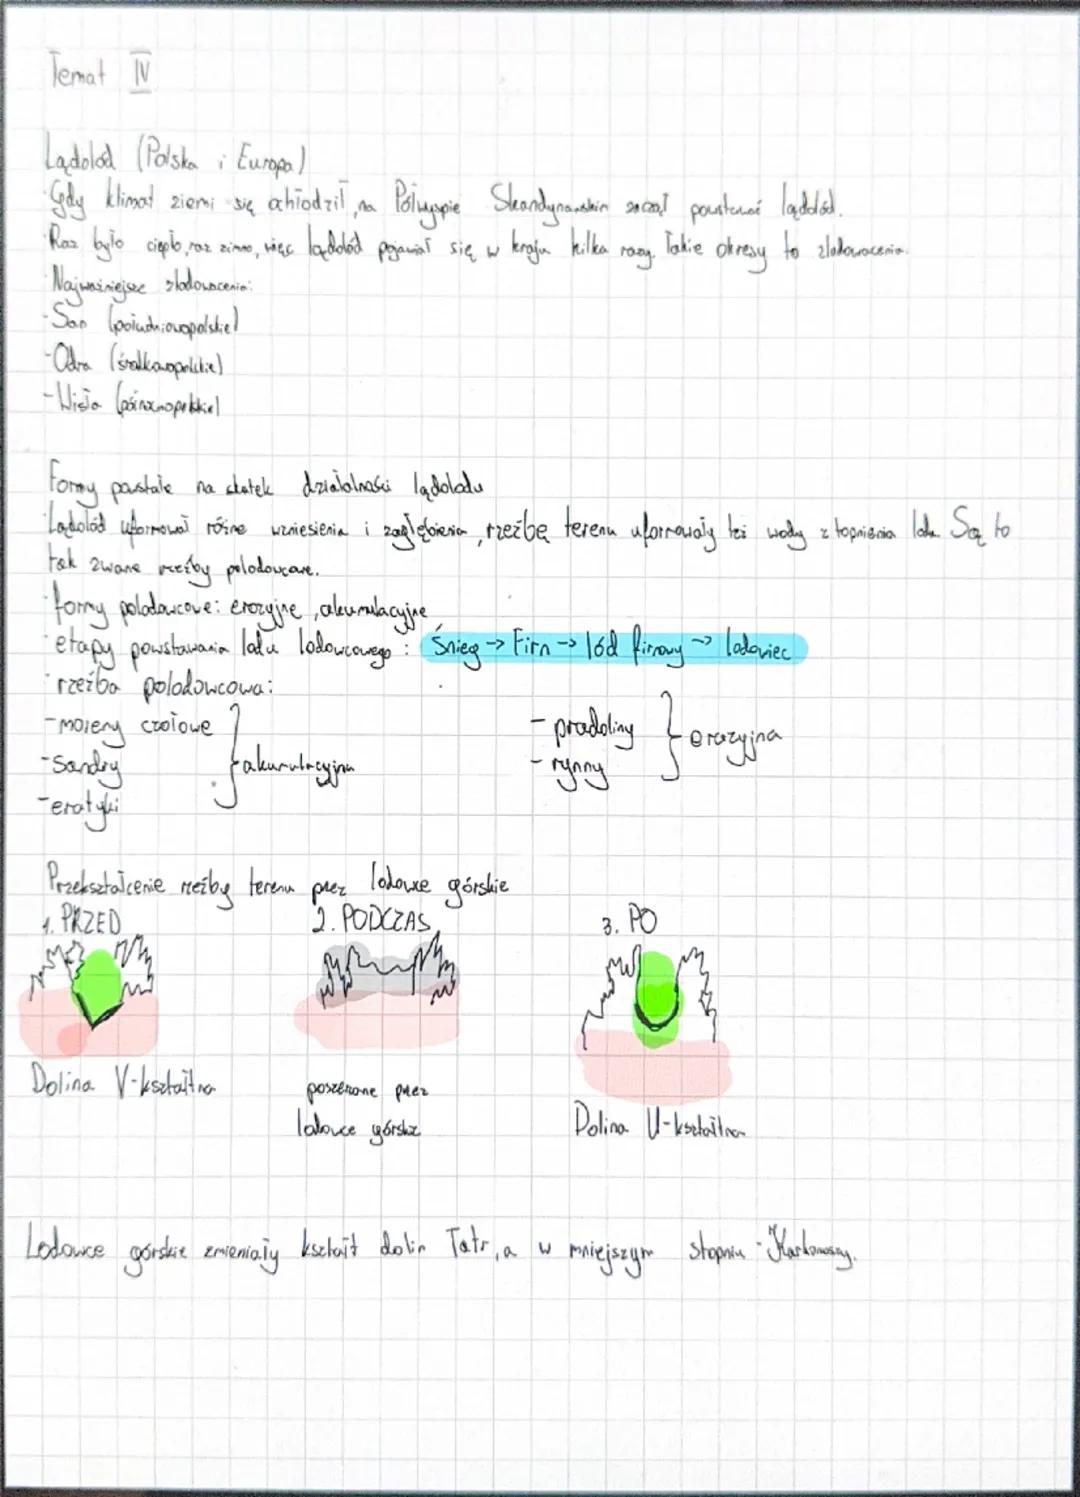 Temat IV
Lądolód (Polska i Europa)
Gdy klimat ziemi się ochłodził, na Półwyspie Skandynawskim zaczął powstawać lądolód.
Raz było ciepło, raz zimno, więc lądolód pojawiał się w kraju kilka razy. Takie okresy to zlodowacenia.
Najważniejsze zlodowacenia:
- San (południowopolskie)
- Odra (środkowopolskie)
- Wisła (północnopolskie)
Formy powstałe na skutek działalności lądolodu
Lądolód uformował różne wzniesienia i zagłębienia, rzeźbę terenu uformowały też wody z topnienia lodu. Są to
tak zwane rzeźby polodowcowe.
formy polodowcowe: erozyjne, akumulacyjne
etapy powstawania lodu lodowcowego: Śnieg → Firn → lód firnowy → lodowiec
rzeźba polodowcowa:
- moreny czołowe
- sandry } akumulacyjna
- eratyki
- pradoliny
- rynny } erozyjna
Przekształcenie rzeźby terenu przez lodowce górskie
1. PRZED 2. PODCZAS 3. PO
Dolina V-kształtna
poszerzane przez
lodowce górskie
Dolina U-kształtna
Lodowce górskie zmieniały kształt dolin Tatr, a w mniejszym stopniu - Karkonoszy.